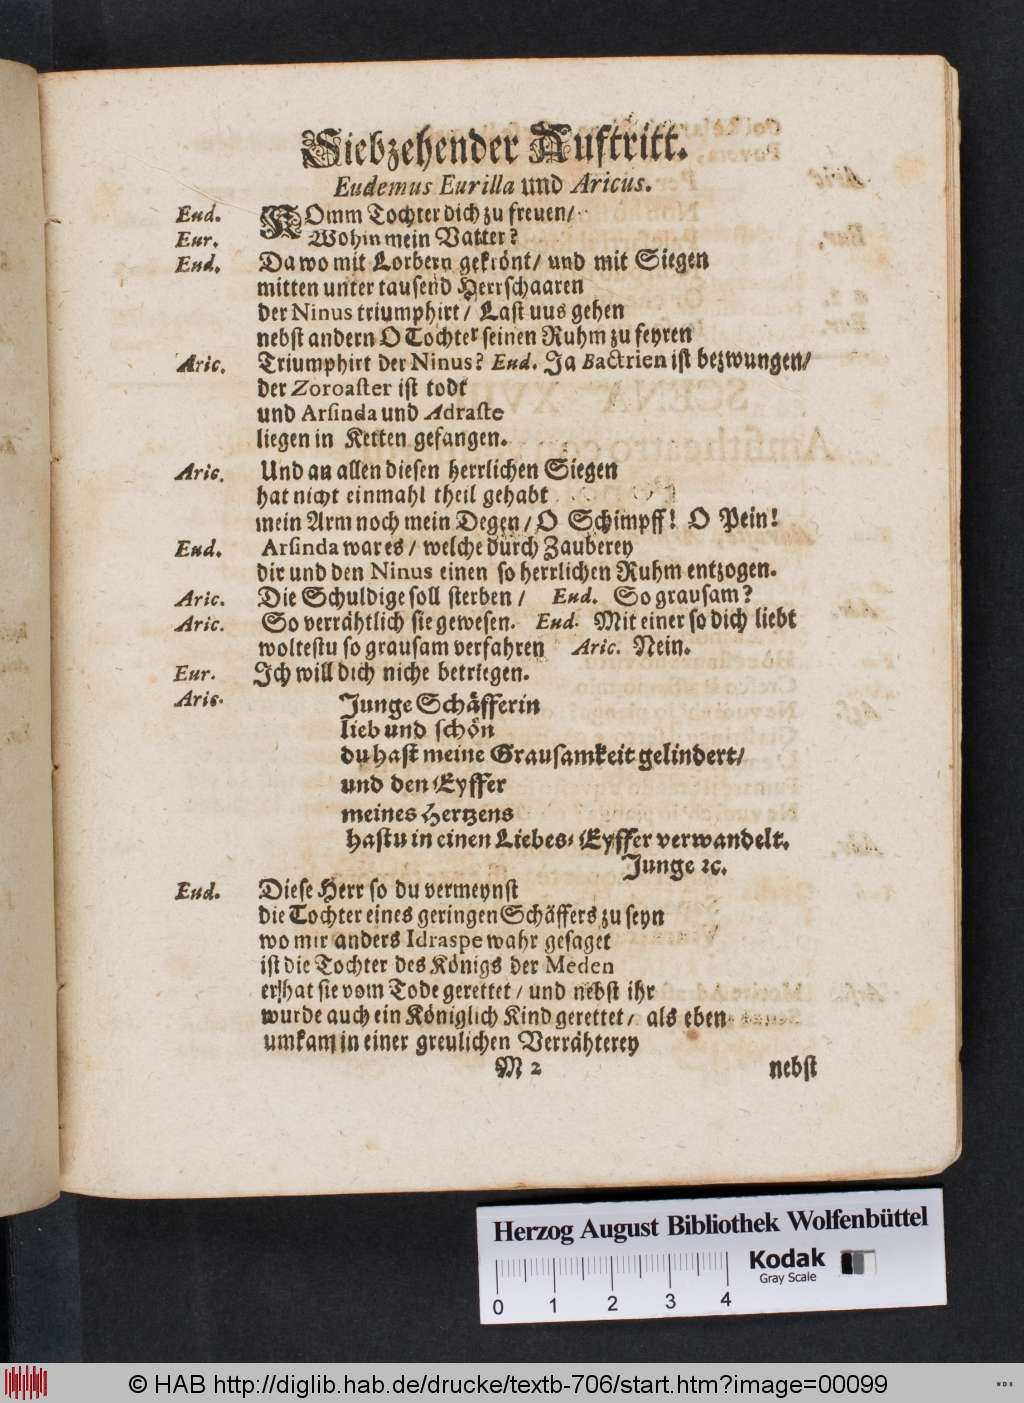 Siebzehender Auftritt.
Eudemus Eurilla und Aricus.
Eud. KOmm Tochter dich zu freuen/
Eur. Wohin mein Vatter?
Eud. Da wo mit Lorbern gekrönt/ und mit Siegen
mitten unter tausend Herrschaaren
der Ninus triumphirt/ Last uus gehen
nebst andern O Tochter seinen Ruhm zu feyren
Aric. Triumphirt der Ninus? Eud. Ja Bactrien ist bezwungen/
der Zoroaster ist todt
und Arsinda und Adraste
liegen in Ketten gefangen.
Aric. Und an allen diesen herrlichen Siegen
hat nicht einmahl theil gehabt
mein Arm noch mein Degen/ O Schimpff! O Pein!
Eud. Arsinda war es/ welche durch Zauberey
dir und den Ninus einen so herrlichen Ruhm entzogen.
Aric. Die Schuldige soll sterben/ Eud. So grausam?
Aric. So verrähtlich sie gewesen. Eud. Mit einer so dich liebt
woltestu so grausam verfahren Aric. Nein.
Eur. Ich will dich niche betriegen.
Aric. Junge Schäfferin
lieb und schön
du hast meine Grausamkeit gelindert/
und den Eyffer
meines Hertzens
hastu in einen Liebes-Eyffer verwandelt.
Junge ꝛc.
Eud. Diese Herr so du vermeynst
die Tochter eines geringen Schäffers zu seyn
wo mir anders Idraspe wahr gesaget
ist die Tochter des Königs der Meden
er hat sie vom Tode gerettet/ und nebst ihr
wurde auch ein Königlich Kind gerettet/ als eben
umkam in einer greulichen Verrähterey
M 2 nebst
Herzog August Bibliothek Wolfenbüttel
Kodak
Gray Scale
0 1 2 3 4
© HAB http://diglib.hab.de/drucke/textb-706/start.htm?image=00099